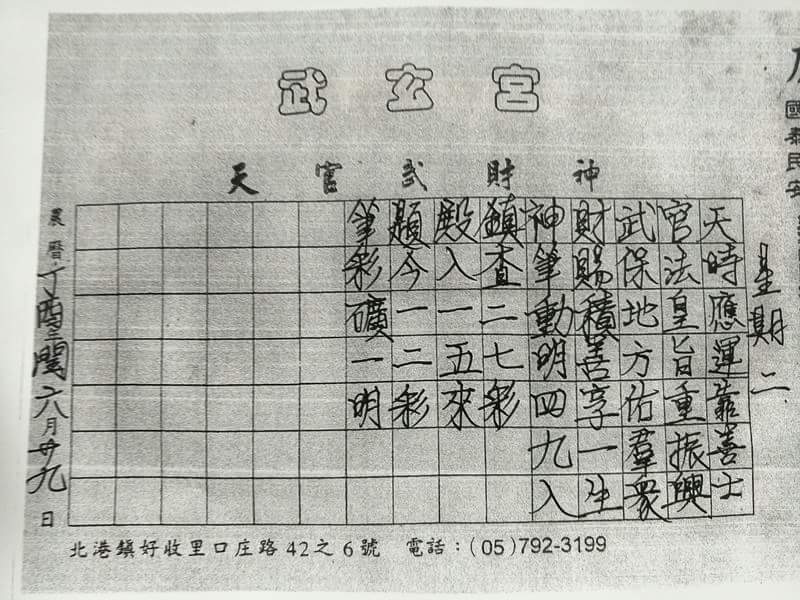 武玄宮
天官武財神
星期二
天時應運靠善士
官法皇旨重振興
武保地方佑羣眾
財賜積善享一生
神筆動明四九入
鎮查二七彩
殿入一五來
顯今一二彩
筆彩礦一明
農曆丁酉年閏六月廿九日
北港鎮好收里口庄路42之6號 電話:(05)792-3199
國泰民安